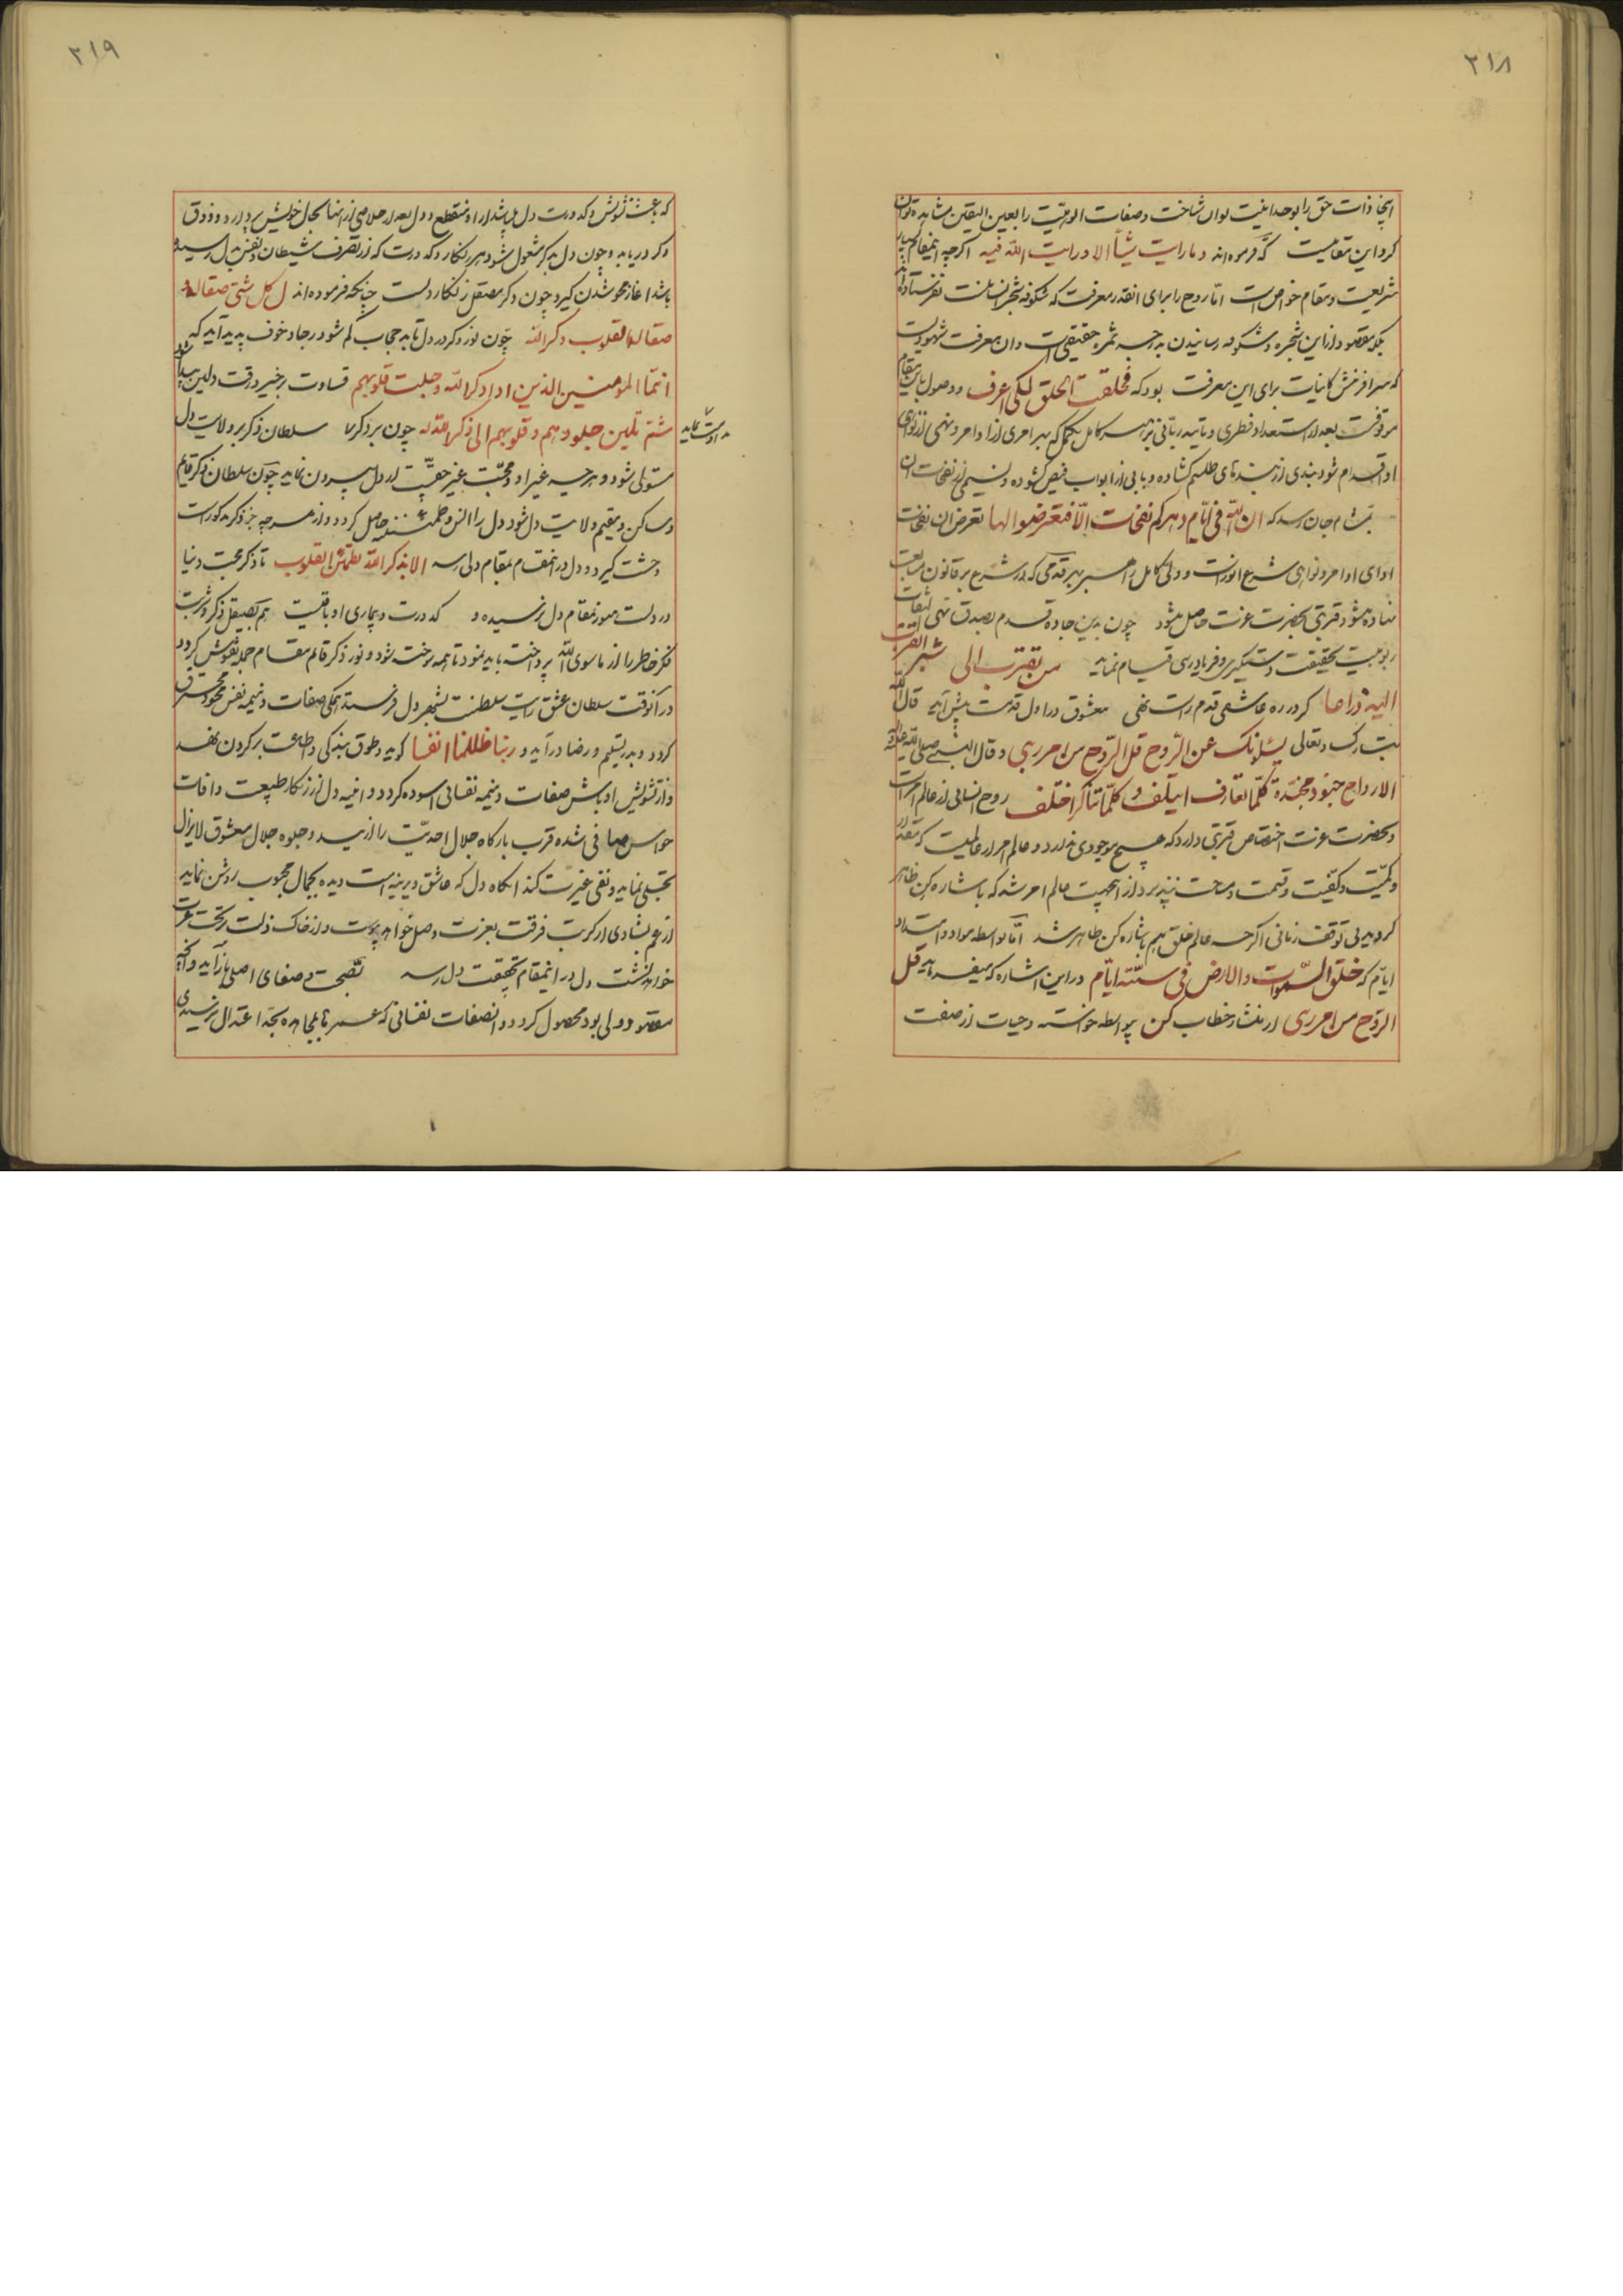 ۳۱۸
اینجا ذات حق را بوحدانیت توان شناخت و صفات الوهیت را بعین الیقین مشاهده توان
کرد این مقامیست که فرموده‌اند و ما رایت شیأ الا و رایت الله فیه اگرچه اینمقام
شریعت و مقام خواص است اما روح را برای انقدر معرفت که شکوفه شجر انسانیست نفرستاده‌اند
بلکه مقصود از این شجره و شکوفه رسانیدن بدرجه ثمره حقیقی است و ان معرفت شهودیست
که سر افرنش کاینات برای این معرفت بود که فخلقت الخلق لکی اعرف و وصول باین مقام
موقوفست بعد از استعداد فطری و تائید ربانی بر سر کامل مکمل که بهر امری از اوامر و نهی از نواهی
او اقدام شود بندی از بندهای طلسم گشاده و بابی از ابواب فیض گشوده و نسیمی از نفحات ان
بمشام جان رسد که ان لله فی ایام دهرکم نفحات الا فتعرضوا لها تعرض ان نفحات
ادای اوامر و نواهی شرع انورست و ولی کامل را هبر بهر قدمی که در شرع بر قانون متابعت
نهاده شود قربتی بحضرت عزت حاصل میشود چون بدین جاده قدم بصدق نهی الطاف
ربوبیت بحقیقت دستگیری و فریادرسی قیام نماید من تقرب الی شبرا تقربت
الیه ذراعا گر در ره عاشقی قدم راست نهی معشوق در اول قدمت پیش آید قال الله
تبارک و تعالی یسئلونک عن الروح قل الروح من امر ربی و قال النبی صلی الله علیه و آله
الارواح جنود مجندة کلما تعارف ایتلف و کلما تناکر اختلف روح انسانی از عالم امر است
و بحضرت عزت اختصاص قربتی دارد که هیچ موجودی ندارد و عالم امر از عالمیست که مقدار
و کمیت و کیفیت و قسمت و مساحت نپذیرد از اینجهت عالم امر شد که باشاره کن ظاهر
گردید بی توقف زمانی اگرچه عالم خلق هم باشاره کن ظاهر شد اما بواسطه مواد و امتداد
ایام که خلق السموات و الارض فی ستة ایام در این اشاره که میفرماید قل
الروح من امر ربی از منشاء خطاب کن بیواسطه خواسته و حیات از صفت
۳۱۹
که بحسب تشویش و کدورت دل میباشد از او منقطع و دل بعد از خلاصی از انها بحال خویش پردازد و ذوق
ذکر دریابد و چون دل بذکر مشغول شود هر زنگار و کدورت که از تصرف شیطان و نفس بدل رسیده
باشد اغاز محو شدن گیرد چون ذکر مصقل زنگار دلست چنانکه فرموده‌اند ل کل شئ صقالة
صقالة القلوب ذکر الله چون نور ذکر در دل تابد حجاب گم شود رجا و خوف پدید آید که
انما المومنین الذین اذا ذکر الله وجلت قلوبهم قساوت برخیزد رقت و لین پیدا شد
ثم تلین جلودهم و قلوبهم الی ذکر الله چون بر ذکر مداومت نماید سلطان ذکر بر ولایت دل
مستولی شود و هرچه غیر او و محبت غیر حق است از دل بیرون نماید چون سلطان ذکر قایم
و ساکن و مقیم ولایت دل شود دل را انس و طمانینه حاصل گردد و از هرچه جز ذکر مذکورست
وحشت گیرد و دل در اینمقام بمقام دلی رسد الا بذکر الله تطمئن القلوب تا ذکر محبت دنیا
در دلست هنوز بمقام دل نرسیده و کدورت و بیماری او باقیست هم بصیقل ذکر و شربت
فکر خاطر را از ماسوی الله پرداخته باید نمود تا همه سوخته شود و نور ذکر قائم مقام جمله نقوش گردد
در آنوقت سلطان عشق رایت سلطنت بشهر دل فرستد تا همگی صفات ذمیمه نفس محو و محترق
گردد و بدر تسلیم و رضا درآید و ربنا ظلمنا انفسنا گوید و طوق بندگی و طاعت بر گردن نهد
و از تشویش اوباش صفات ذمیمه نفسانی اسوده گردد و اینه دل از زنگار طبیعت و افات
حواس صافی شده قرب بارگاه جلال احدیت را زیبد و جلوه جمال معشوق لایزال
تجلی نماید و نفی غیرت کند انگاه دل که عاشق دیرینه است دیده بجمال محبوب روشن نماید
از غم بشادی از کربت فرقت بعزت وصل خواهد پیوست و از خاک ذلت بر تخت عزت
خواهد نشست دل در اینمقام بحقیقت دل رسد بصحت و صفای اصلی باز آید و آنچه
مقصود ولی بود محصول گردد و انصفات نفسانی که عمرها بمجاهده بحد اعتدال نرسیدی